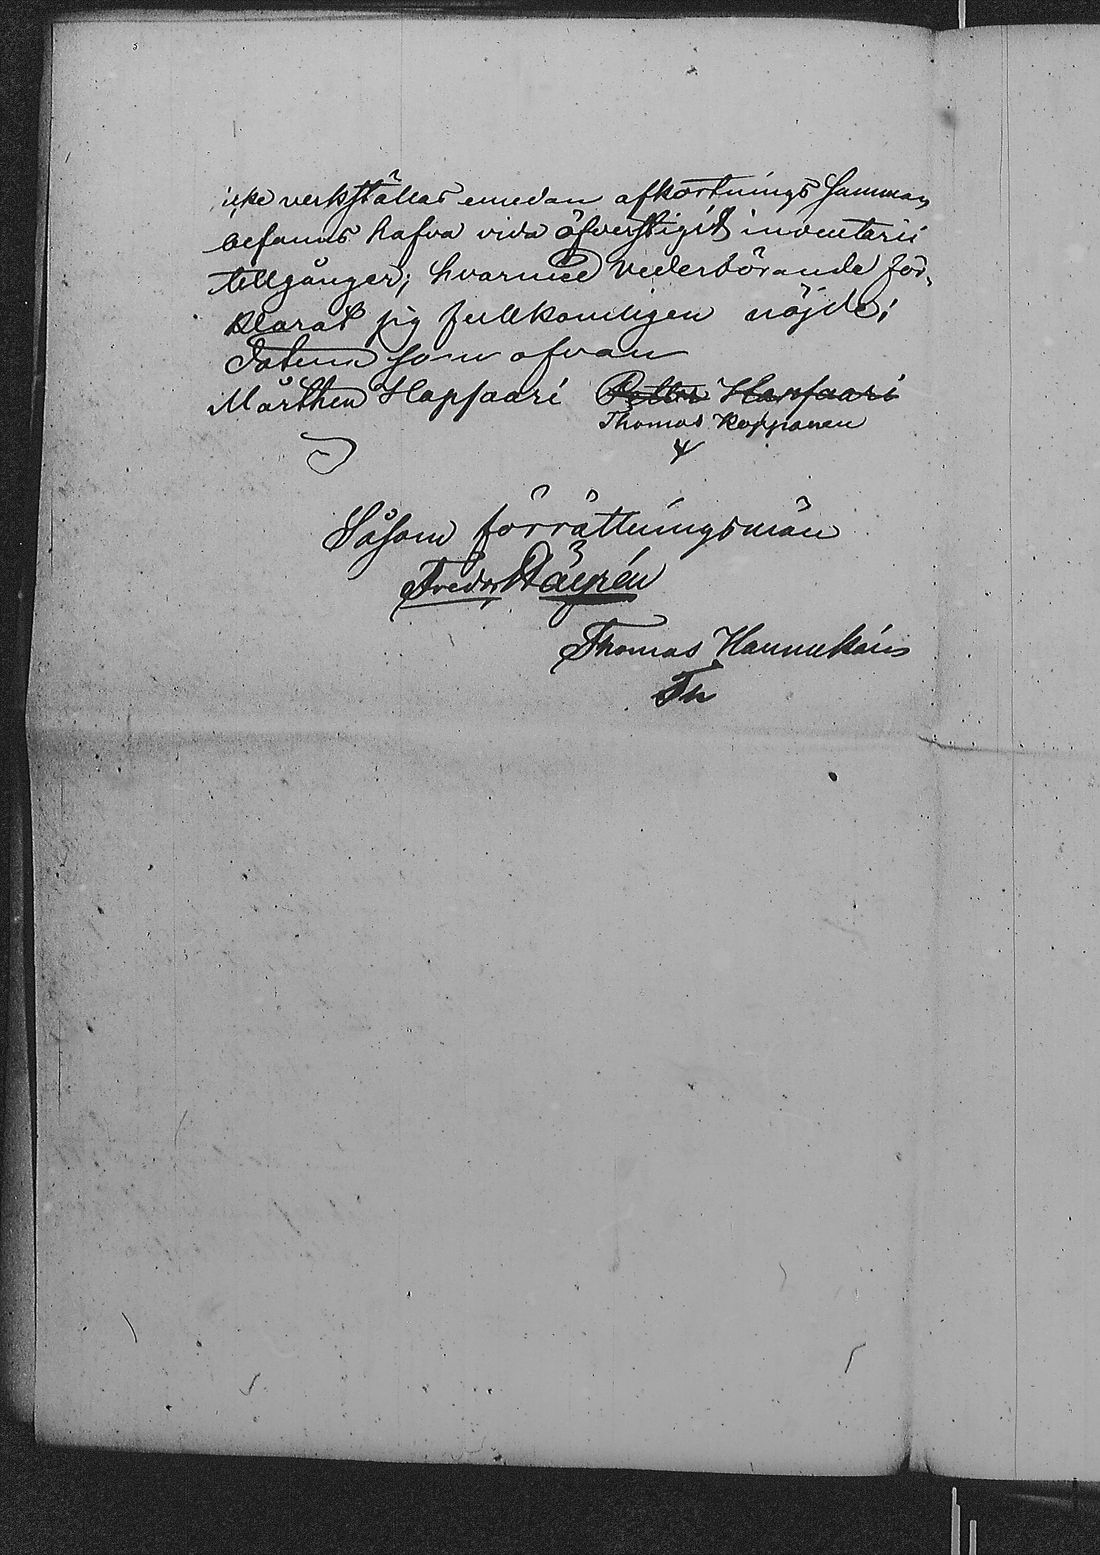 icke verkställas emedan afkortnings summan
befanns hafva vida öfverstigit inventarii
tillgånger; hvarmed vederbörande för-
klarat sig fullkomligen nöjde;
Datum som ofvan
Mårthen Hapsaari Petter Hapsaari
Thomas Kopponen
Såsom förrättningsmän
Fredr
Thomas Hannukain
Th